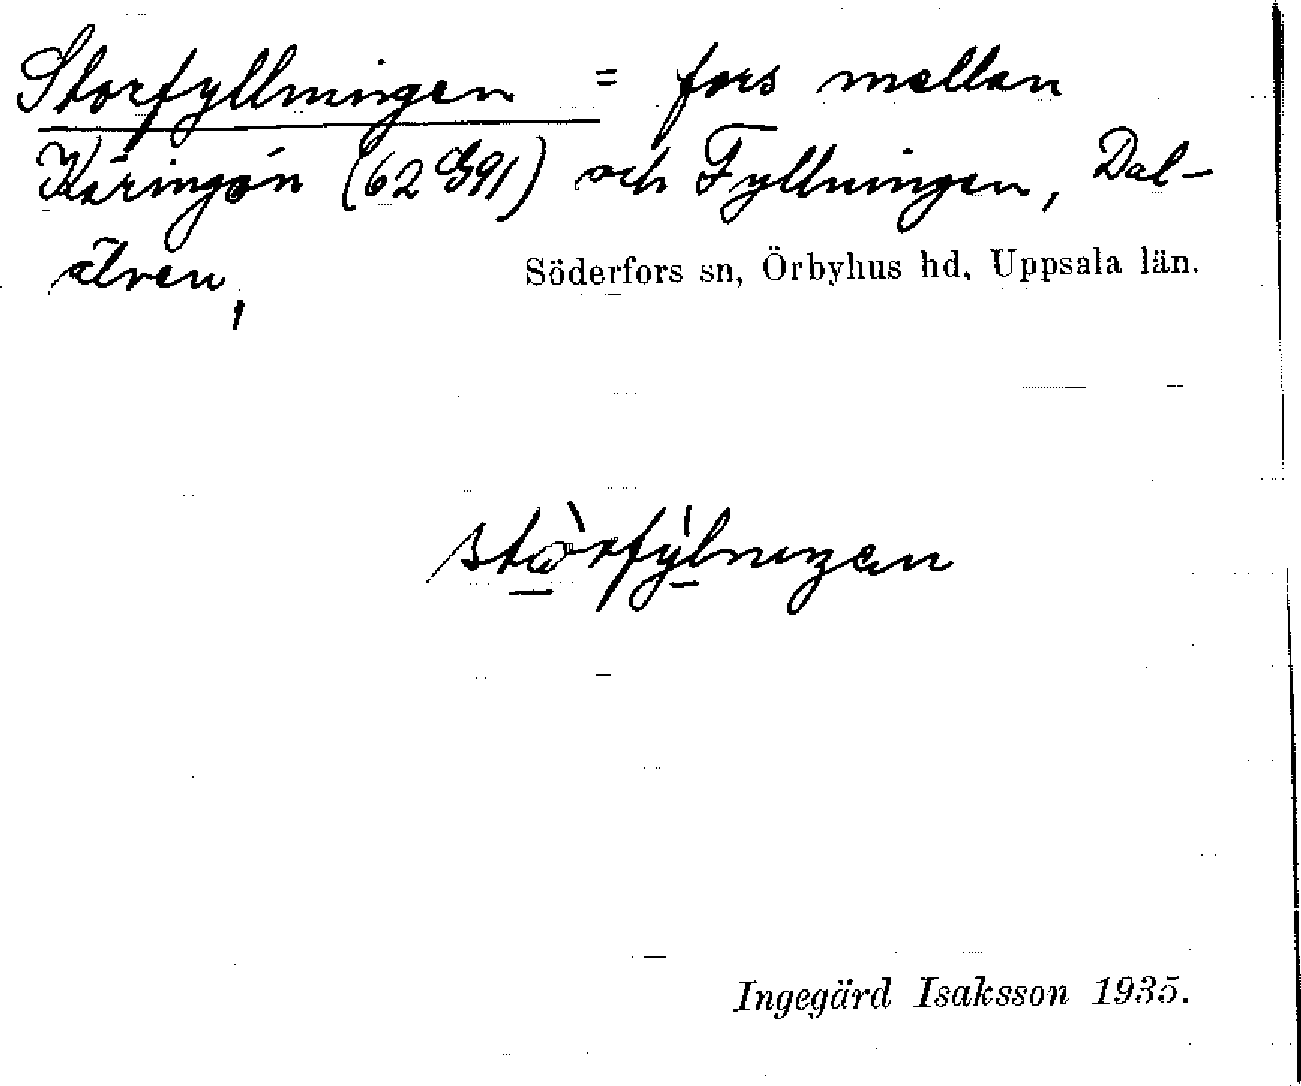 Storfyllningen = fors mellan
Käringön (62 G91) och Fyllningen, Dal-
älven,
Söderfors sn, Örbyhus hd, Uppsala län.
Ingegärd Isaksson 1935.